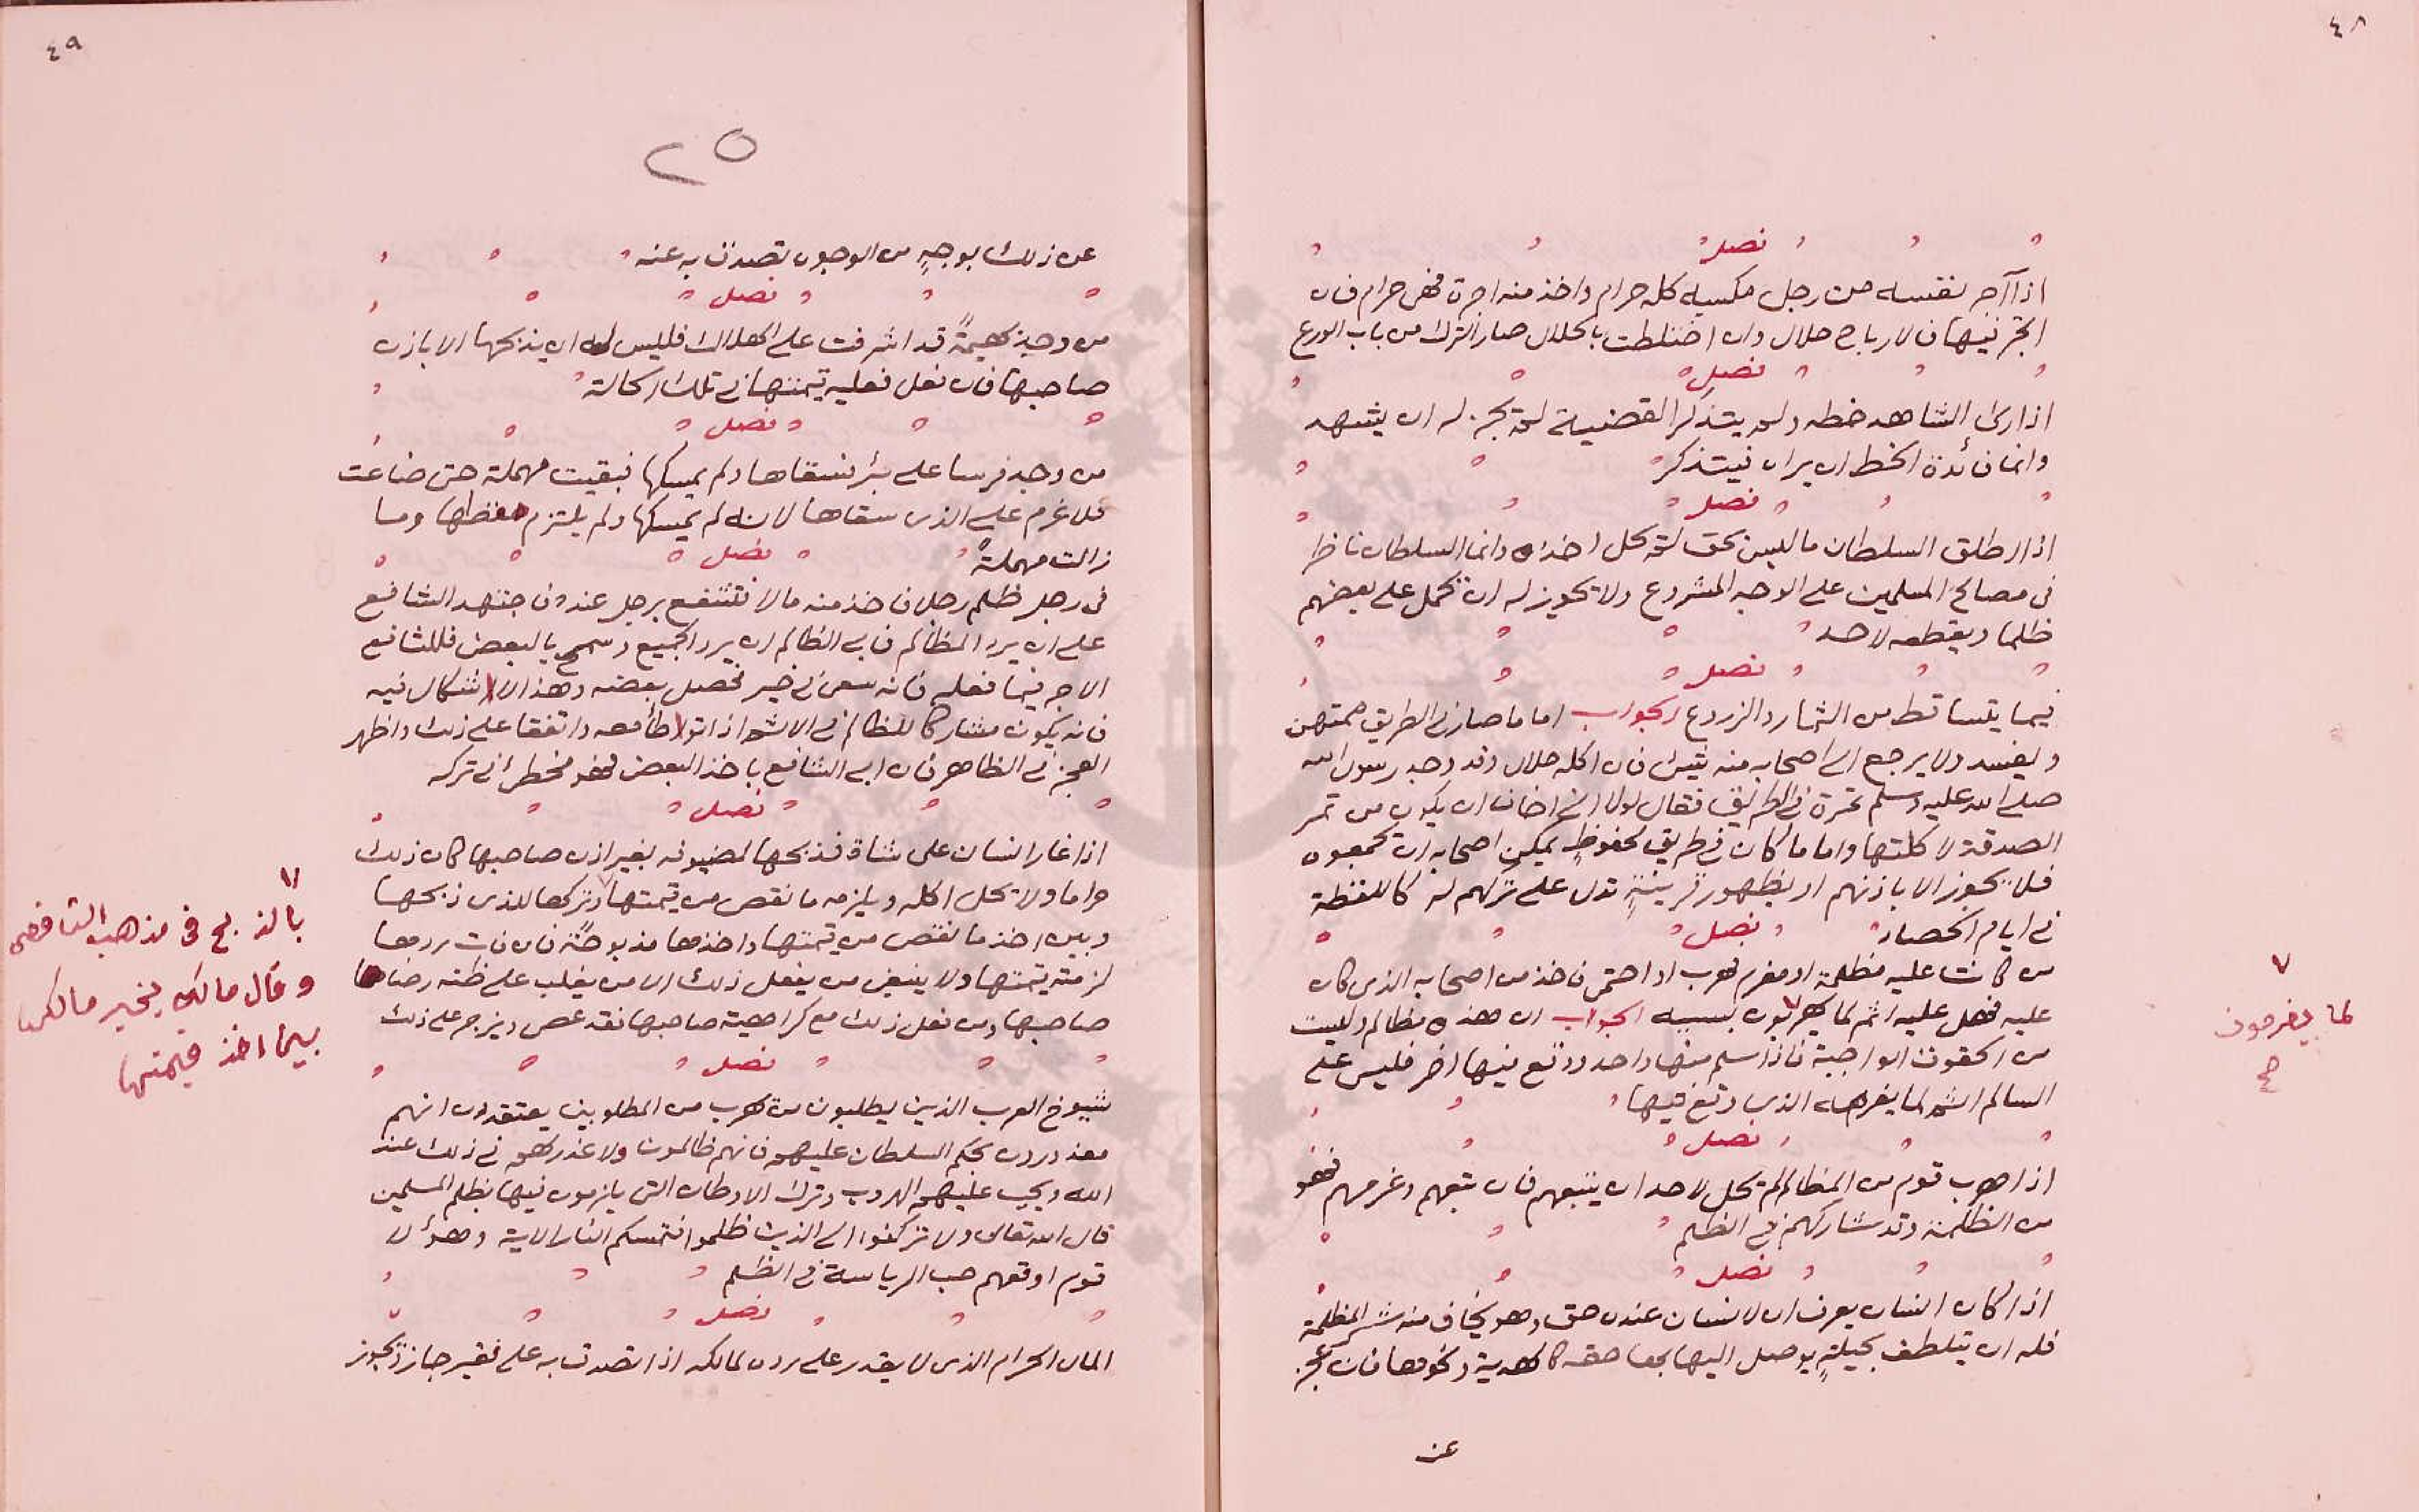 ٤٨
فصل
اذا آجر نفسه من رجل مكسبه كله حرام واخذ منه اجرة فهى حرام فان
اتجر فيها فالارباح حلال وان اختلطت بالحلال صار الترك من باب الورع
فصل
اذا رأى الشاهد خطه ولم يتذكر القضية لم يجز له ان يشهد
وانما فائدة الخط ان يراه فيتذكر
فصل
اذا اطلق السلطان ما ليس بحق لم يحل اخذه وانما السلطان ناظرا
فى مصالح المسلمين على الوجه المشروع ولا يجوز له ان يحمل على بعضهم
ظلما ويقطعه لاحد
فصل
فيما يتساقط من الثمار والزروع الجواب اما ما صار فى الطريق ممتهن
ويفسد ولا يرجع الى اصحابه منه شئ فان اكله حلال وقد وجد رسول الله
صلى الله عليه وسلم تمرة فى الطريق فقال لولا انى اخاف ان يكون من تمر
الصدقة لاكلتها واما ما كان فى طريق محفوظ يمكن اصحابه ان يجمعوه
فلا يجوز الا باذنهم او بظهور قرينةٍ تدل على تركهم له كاللفظة
فى ايام الحصاد فصل
من كانت عليه مظلمة او مغرم فهرب او احتمى فاخذ من اصحابه الذى كان
عليه فهل عليه اثم لما يهربون بسببه الجواب ان هذه مظالم وليست
من الحقوق الواجبة فاذا سلم منها واحد ووقع فيها اخر فليس على
السالم اثم لما يغرمه الذى وقع فيها
فصل
اذا هرب قوم من المظالم لم يحل لاحد ان يتبعهم فان تبعهم وغرمهم فهو
من الظلمة وقد شاركهم فى الظلم
فصل
اذا كان انسان يعرف ان لانسان عنده حق وهو يخاف منه شر المظلمة
فله ان يتلطف بحيلةٍ يوصل اليها بها حقه كالهدية ونحوها فان عجز
عن
٧
لما يغرمون
صح
٤٩
٢٥
عن ذلك بوجهٍ من الوجوه تصدق به عنه
فصل
من وجد بهيمةً قد اشرفت على الهلاك فليس له ان يذبحها الا باذن
صاحبها فان فعل فعليه قيمتها فى تلك الحالة
فصل
من وجد فرسا على بئر فسقاها ولم يمسكها فبقيت مهملة حتى ضاعت
فلا غرم على الذى سقاها لانه لم يمسكها ولم يلتزم حفظها وما
زالت مهملةً فصل
فى رجل ظلم رجلا فاخذ منه مالا فتشفع برجل عنده فاجتهد الشافع
على ان يرد المظالم فابى الظالم ان يرد الجميع وسمح بالبعض فللشافع
الاجر فيما فعله فانه سعى فى خير فحصل بعضه وهذا لا اشكال فيه
فانه يكون مشاركا للظالم فى الاثم اذا تواطأ معه واتفقا على ذلك واظهر
العجز فى الظاهر فان ابى الشافع باخذ البعض فهو مخطئ فى تركه
فصل
اذا غار انسان على شاة فذبحها لضيوفه بغير اذن صاحبها كان ذلك
حراما ولا تحل اكله ويلزمه ما نقص من قيمتها وتركها للذى ذبحها
وبين اخذ ما نقص من قيمتها واخذها مذبوحةً فان فات ردها
لزمته قيمتها ولا ينبغى من يفعل ذلك الا من يغلب على ظنه رضا
صاحبها ومن فعل ذلك مع كراهية صاحبها فقد عصى ويزجر على ذلك
فصل
شيوخ العرب الذين يطلبون من هرب من المطلوبين يعتقدون انهم
معذورون بحكم السلطان عليهم فانهم ظالمون ولا عذر لهم فى ذلك عند
الله ويجب عليهم الهروب وترك الاوطان التى يلزمون فيها بظلم المسلمين
قال الله تعالى ولا تركنوا الى الذين ظلموا فتمسكم النار الاية وهؤلا
قوم اوقعهم حب الرياسة فى الظلم
فصل
المال الحرام الذى لا يقدر على رده لمالكه اذا تصدق به على فقير جاز ويجوز
٧
بالذبح فى مذهب الشافعى
وقال مالك يخير مالكها
بين اخذ قيمتها